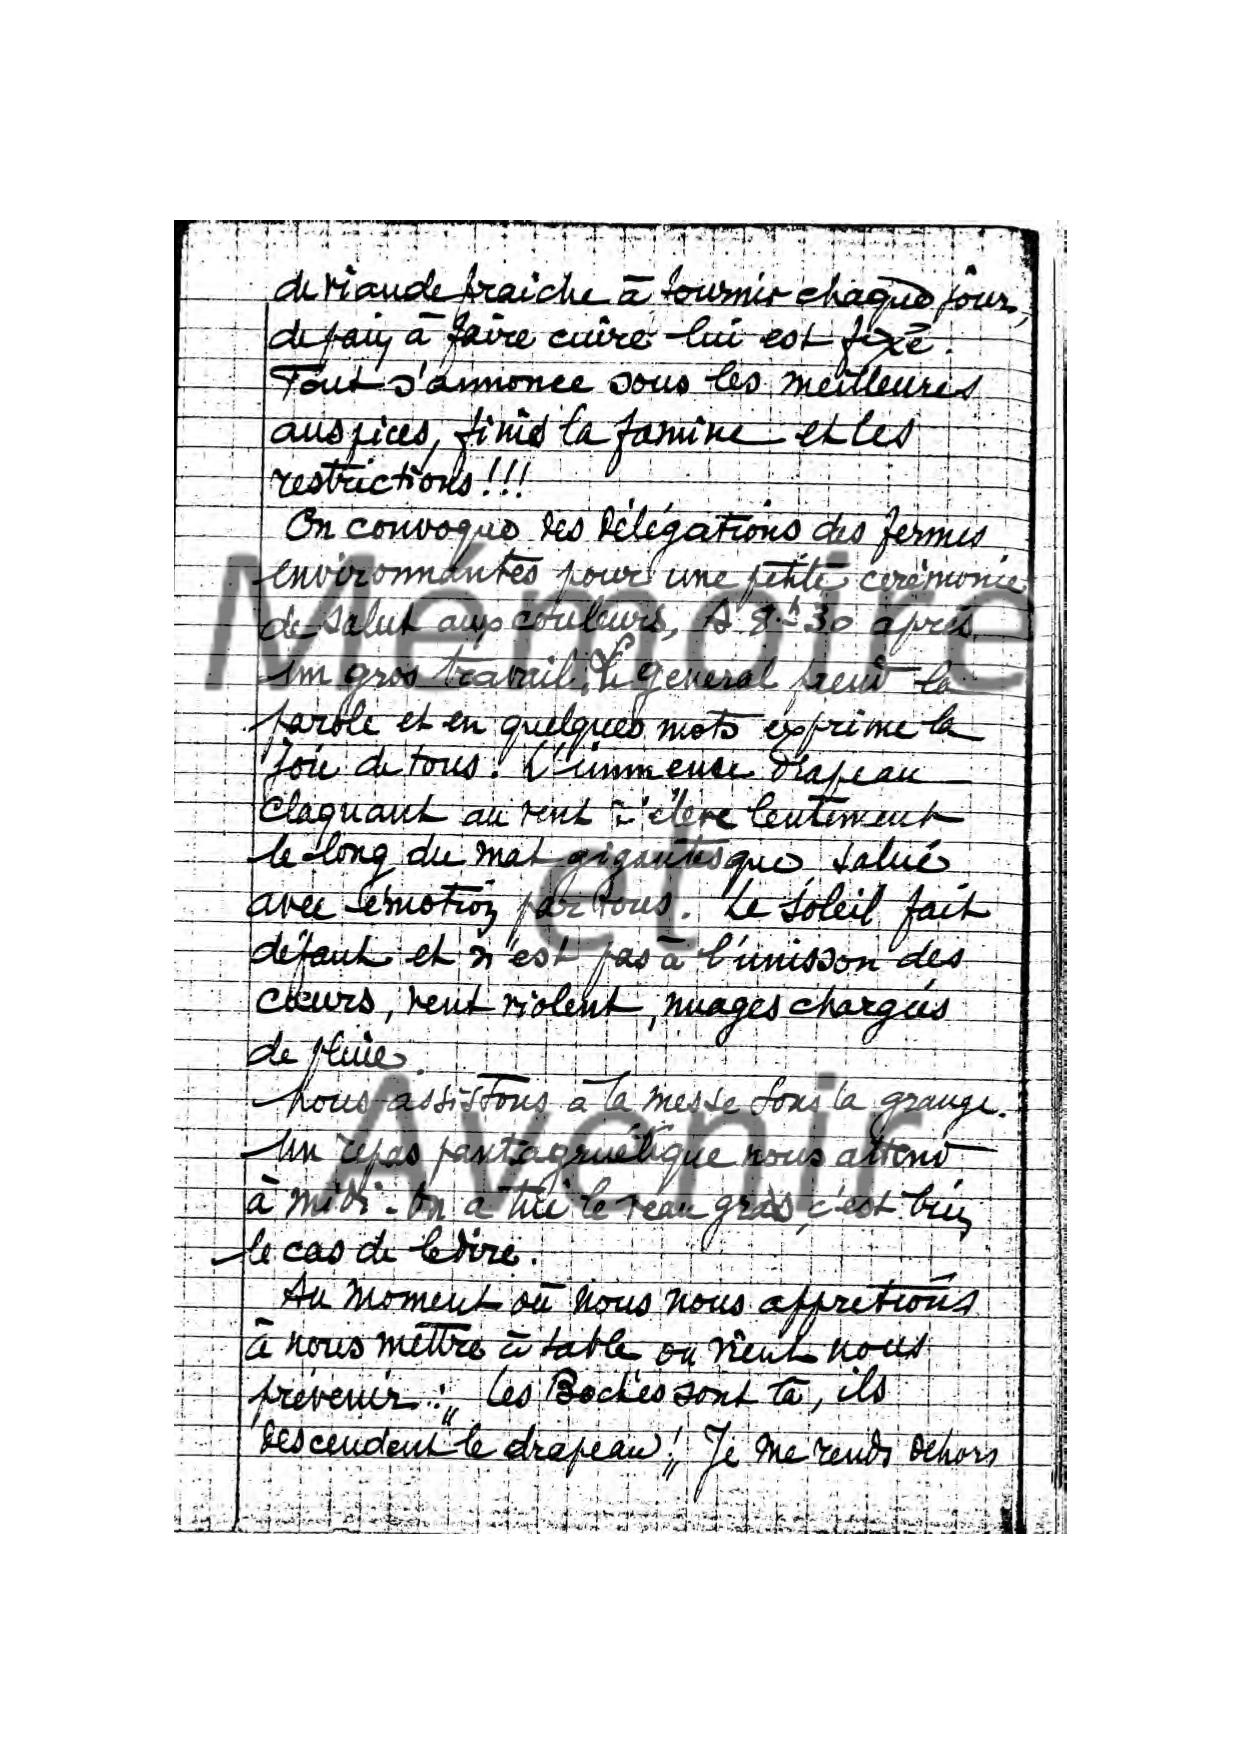 de viande fraiche à fournir chaque jour,
de pain à faire cuire lui est fixé.
Tout s'annonce sous les meilleures
auspices, finis la famine et les
restrictions!!!
On convoque des délégations des fermes
environnantes pour une petite cérémonie
de salut aux couleurs, A 8h30 après
un gros travail, Le général prend la
parole et en quelques mots exprime la
joie de tous. L'immense drapeau
claquant au vent s'élève lentement
le long du mat gigantesque, salué
avec émotion par tous. Le soleil fait
défaut et n'est pas à l'unisson des
cœurs, vent violent, nuages chargés
de pluie.
Nous assistons à la messe sous la grange.
Un repas pantagruélique nous attend
à midi. On a tué le veau gras, c'est bien
le cas de le dire.
Au moment où nous nous apprêtions
à nous mettre à table on vient nous
prévenir : " Les Boches sont là, ils
descendent le drapeau!" Je me rends dehors
Mémoire
et
Avenir